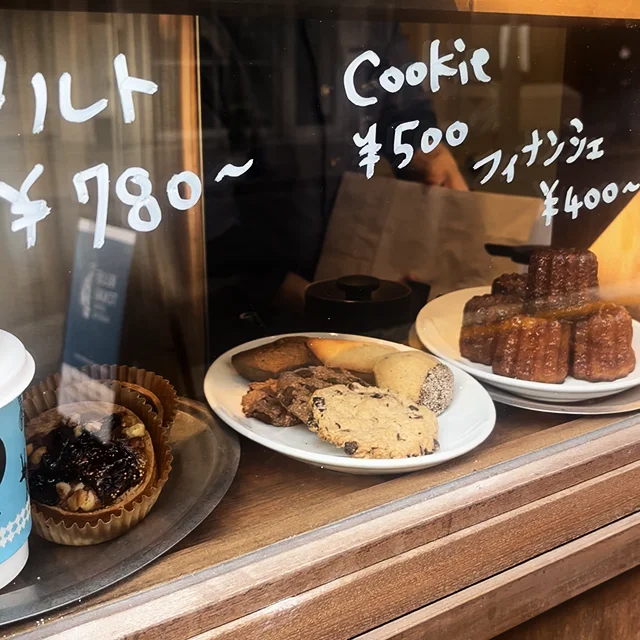 タルト
¥780~
Cookie
¥500
フィナンシェ
¥400~